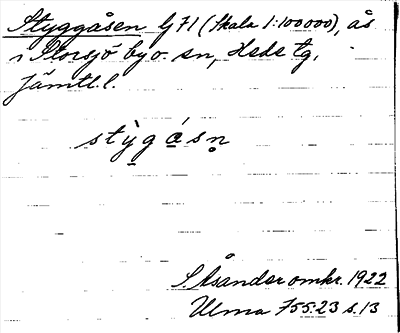 Styggåsen G 71 (Skala 1:100000), ås
i Storsjö by o. sn, Hede tg,
Jämtl. l.
stỳg ás n̥
S. Åsander omkr. 1922
Ulma 755:23 s. 13